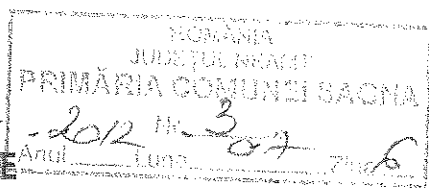 ROMÂNIA
JUDEŢUL NEAMŢ
PRIMĂRIA COMUNEI SAGNA
2012 Nr. 3
Anul Luna 07 Ziua 6